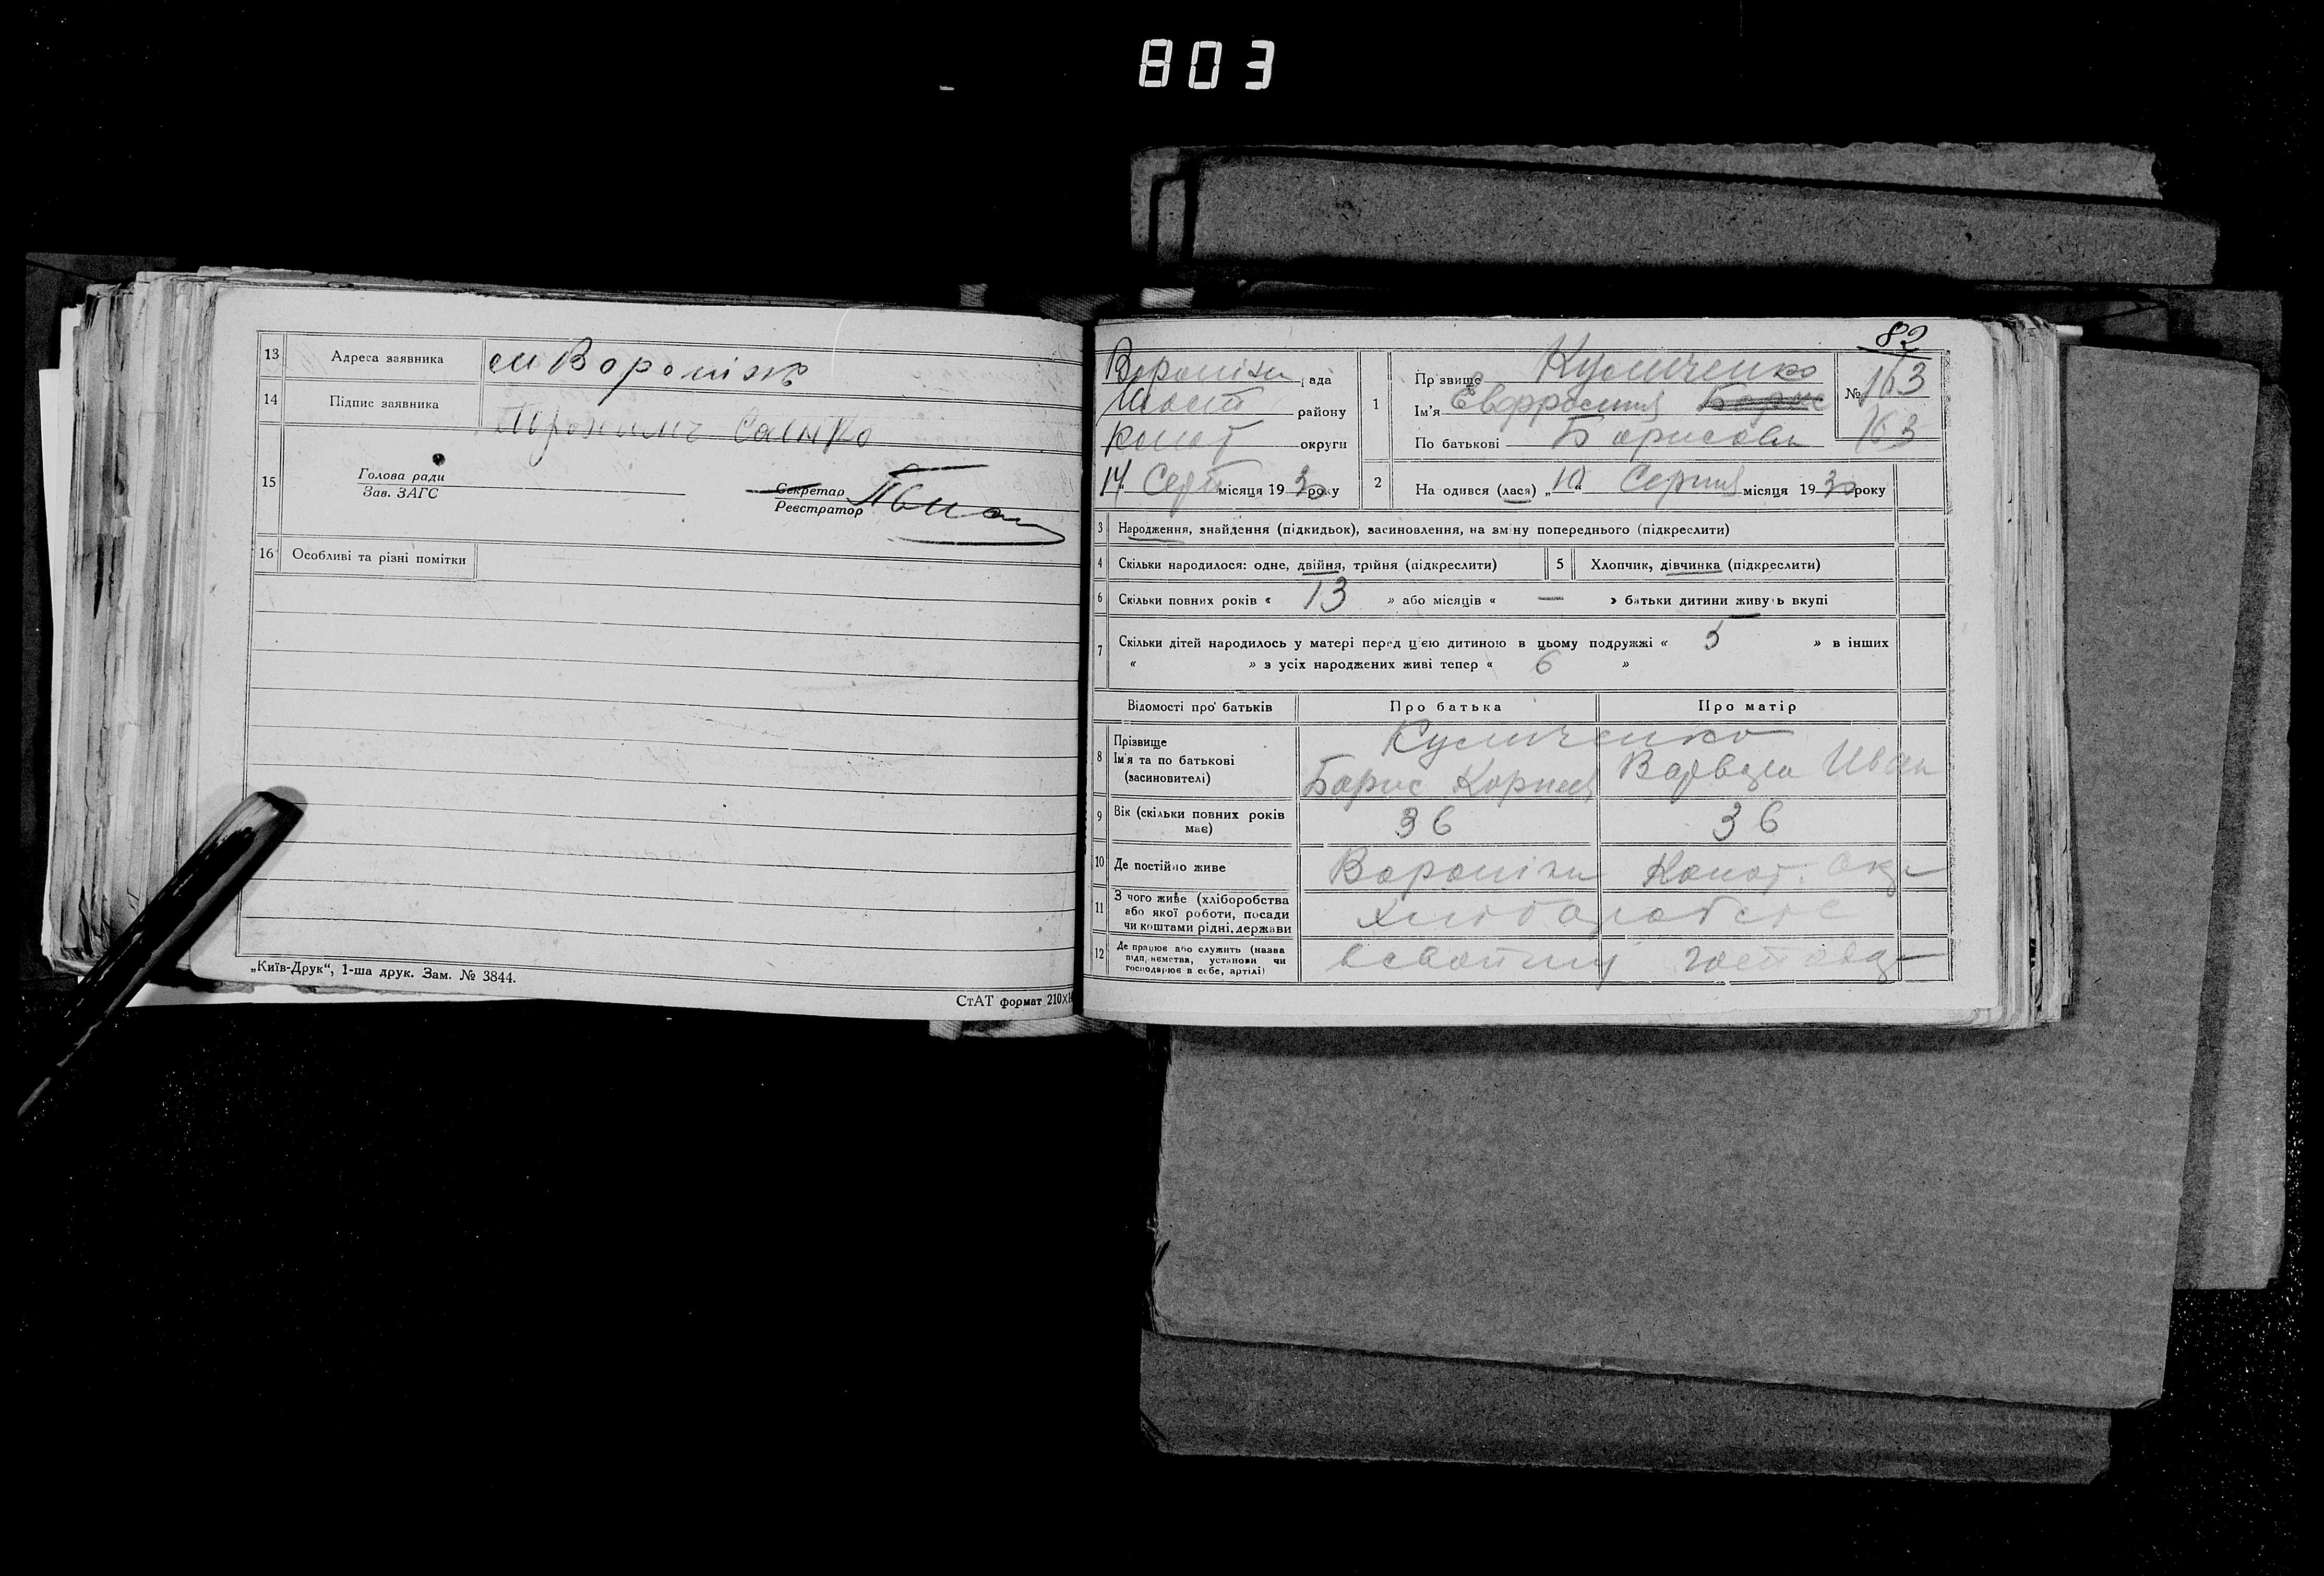 803
13 Адреса заявника м Вороніж
14 Підпис заявника
15 Голова ради
Зав. ЗАГС
Секретар
Реєстратор
16 Особливі та різні помітки
„Київ-Друк“, 1-ша друк. Зам. № 3844.
СтАТ формат 210×1
82
Вороніж рада
Шост району
Конот округи
14 Серп місяця 1930 року
1 Прізвище
Ім'я Евфросинія Борис
По батькові Борисовн
№ 163
163
2 На одився (лася) „10“ Серпня місяця 1930 року
3 Народження, знайдення (підкидьок), засиновлення, на зміну попереднього (підкреслити)
4 Скільки народилося: одне, двійня, трійня (підкреслити)
5 Хлопчик, дівчинка (підкреслити)
6 Скільки повних років « 13 » або місяців « — » батьки дитини живуть вкупі
7 Скільки дітей народилось у матері перед цією дитиною в цьому подружжі « 5 » в інших
« » з усіх народжених живі тепер « 6 »
Відомості про батьків
Про батька
Про матір
8 Прізвище
Ім'я та по батькові
(засиновителі)
Борис Корнеев
Варвара Иван
9 Вік (скільки повних років
має)
36
36
10 Де постійно живе
Вороніж Конот. окр
11 З чого живе (хліборобства
або якої роботи, посади
чи коштами рідні, держави
хліборобство
12 Де працює або служить (назва
підприємства, установи чи
господарює в себе, артілі)
в своїому господ